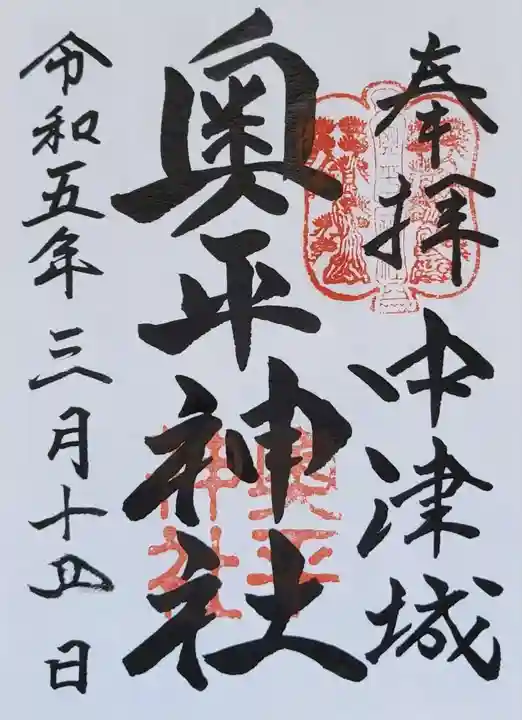 奉拝
中津城
奥平神社
奥平
神社
令和五年三月十四日